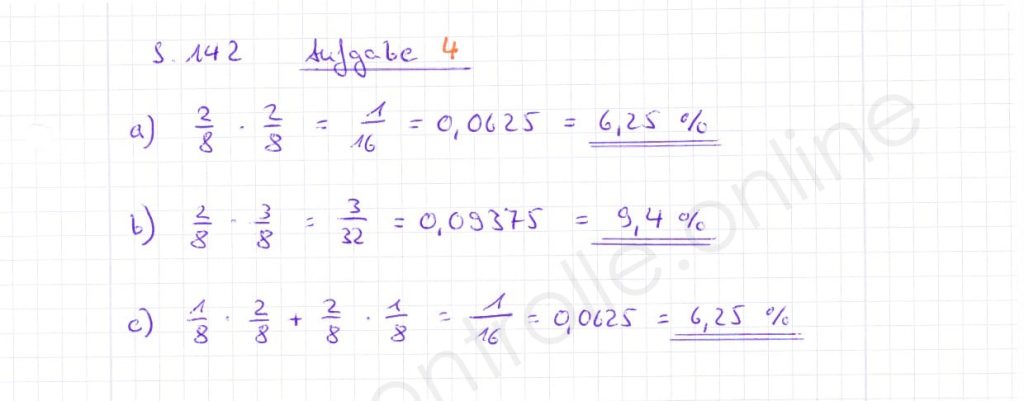 S. 142 Aufgabe 4
a) 2/8 · 2/8 = 1/16 = 0,0625 = 6,25 %
b) 2/8 · 3/8 = 3/32 = 0,09375 = 9,4 %
c) 1/8 · 2/8 + 2/8 · 1/8 = 1/16 = 0,0625 = 6,25 %
ontrolle.online